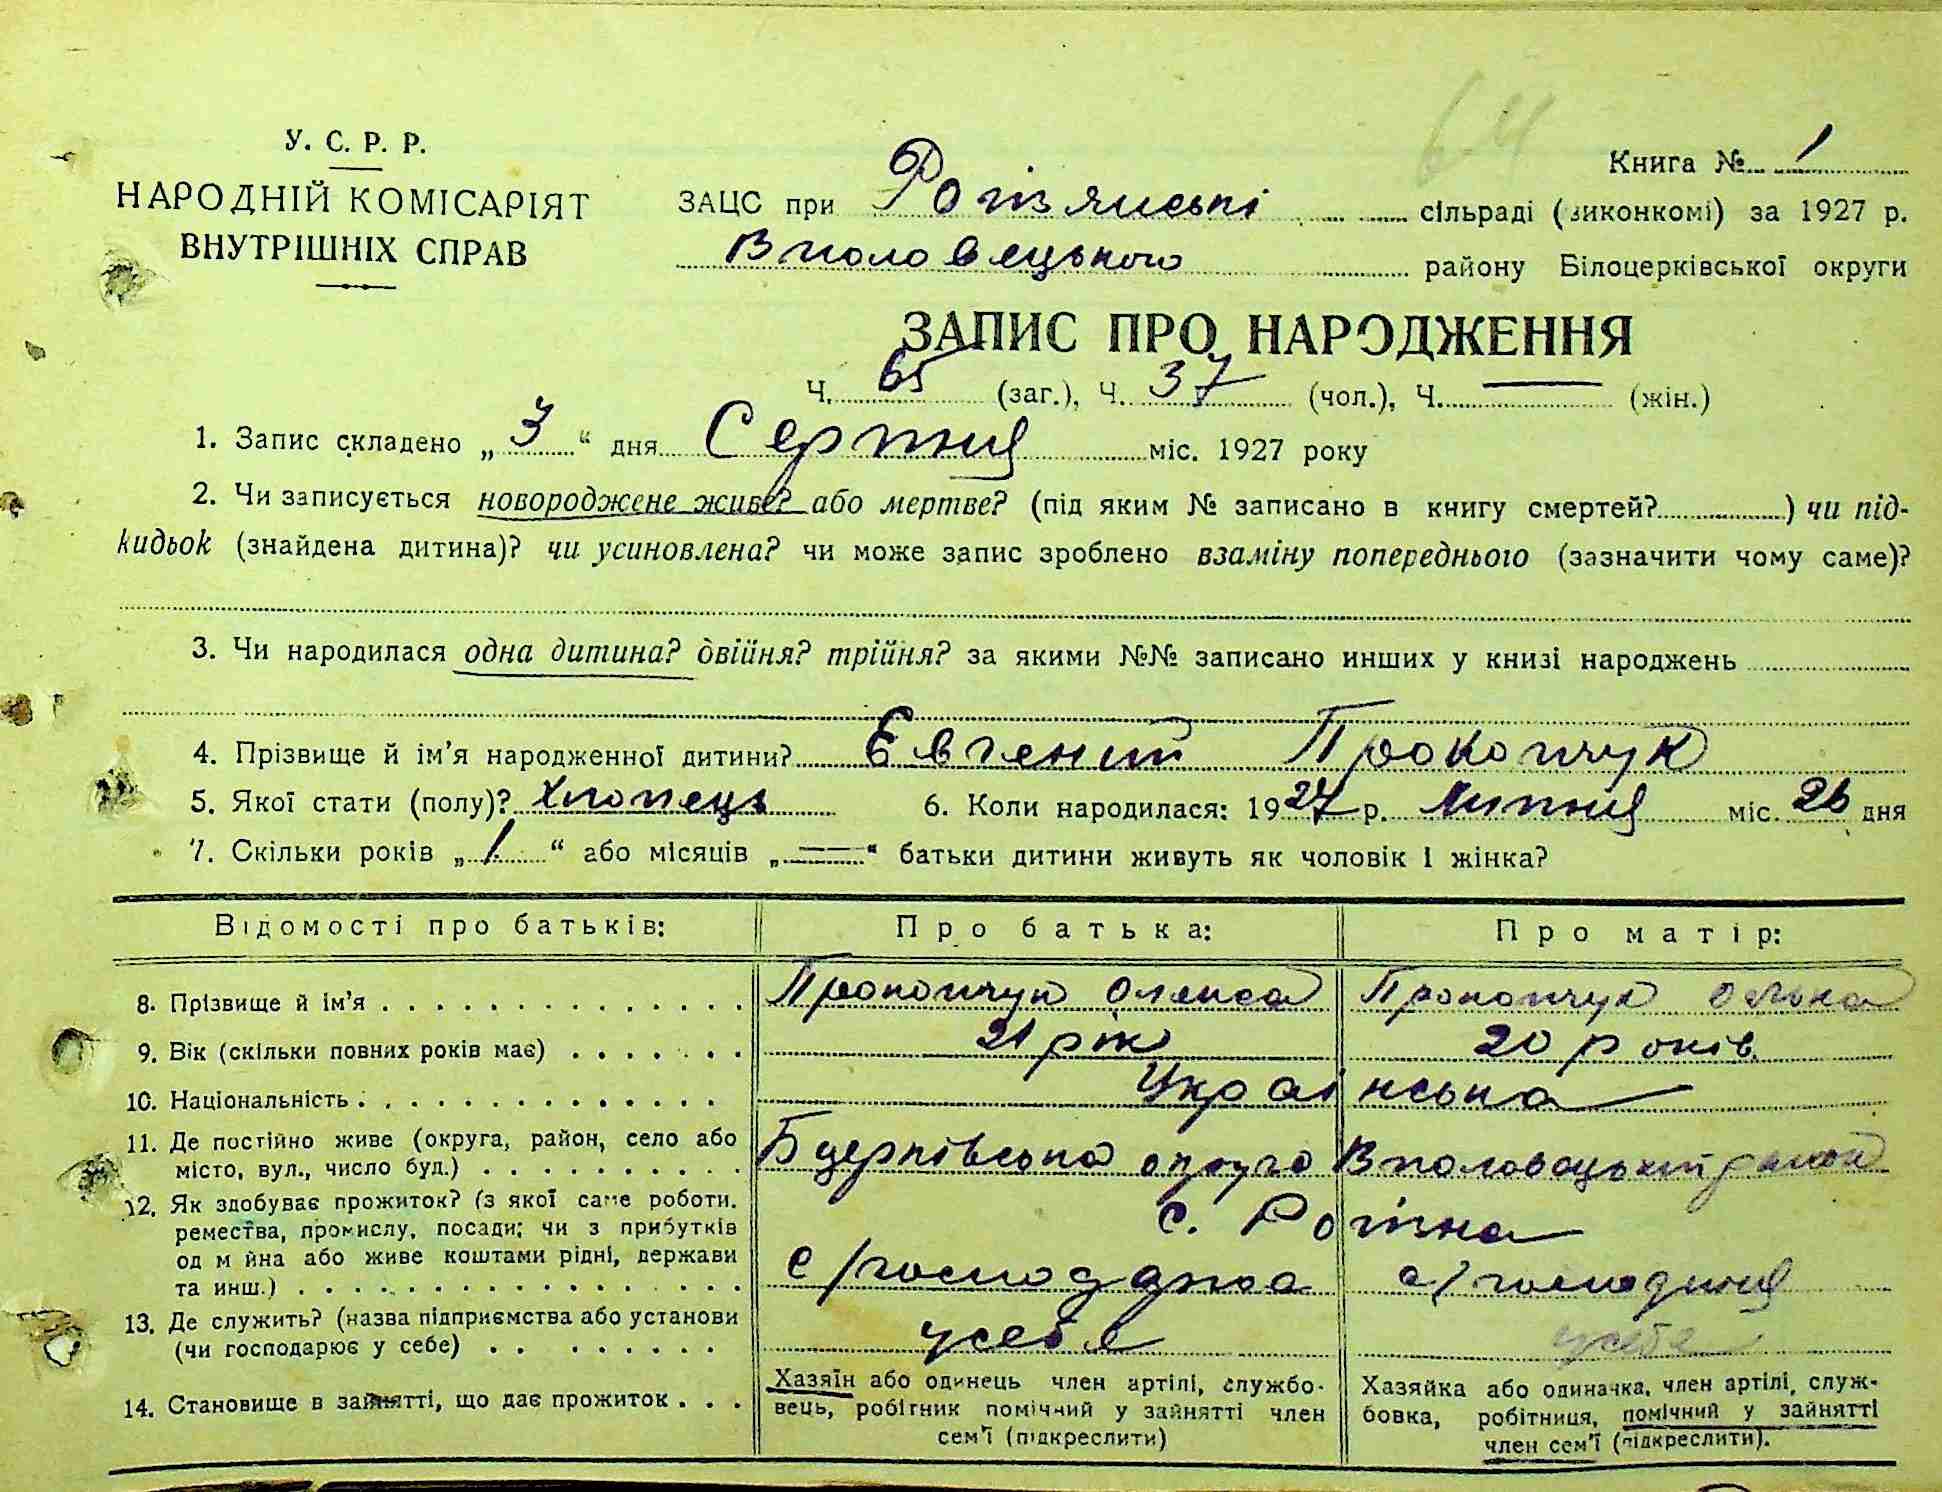 64
У. С. Р. Р.
НАРОДНІЙ КОМІСАРІЯТ
ВНУТРІШНІХ СПРАВ
Книга № 1
ЗАЦС при Рогізянській сільраді (виконкомі) за 1927 р.
Володарського району Білоцерківської округи
ЗАПИС ПРО НАРОДЖЕННЯ
Ч. 65 (заг.), Ч. 37 (чол.), Ч. — (жін.)
1. Запис складено „ 3 " дня Серпня міс. 1927 року
2. Чи записується новороджене живе? або мертве? (під яким № записано в книгу смертей? ) чи під-
кидьок (знайдена дитина)? чи усиновлена? чи може запис зроблено взаміну попереднього (зазначити чому саме)?
3. Чи народилася одна дитина? двійня? трійня? за якими №№ записано инших у книзі народжень
4. Прізвище й ім'я народженної дитини? Євгений Прокопчук
5. Якої стати (полу)? Хлопець 6. Коли народилася: 1927 р. Липня міс. 26 дня
7. Скільки років „ 1 " або місяців „ — " батьки дитини живуть як чоловік і жінка?
Відомості про батьків: Про батька: Про матір:
8. Прізвище й ім'я Прокопчук Олекса Прокопчук Ольга
9. Вік (скільки повних років має) 21 рік 20 років
10. Національність Українська
11. Де постійно живе (округа, район, село або
місто, вул., число буд.) Бцерківська округа район
с. Рогізна
12. Як здобуває прожиток? (з якої саме роботи,
ремества, промислу, посади; чи з прибутків
од майна або живе коштами рідні, держави
та инш.) с/господарка с/господиня
13. Де служить? (назва підприємства або установи
(чи господарює у себе) усебе усебе
14. Становище в зайнятті, що дає прожиток
Хазяїн або одинець член артілі, службо-
вець, робітник помічний у зайнятті член
сем'ї (підкреслити)
Хазяйка або одиначка, член артілі, служ-
бовка, робітниця, помічний у зайнятті
член сем'ї (підкреслити).